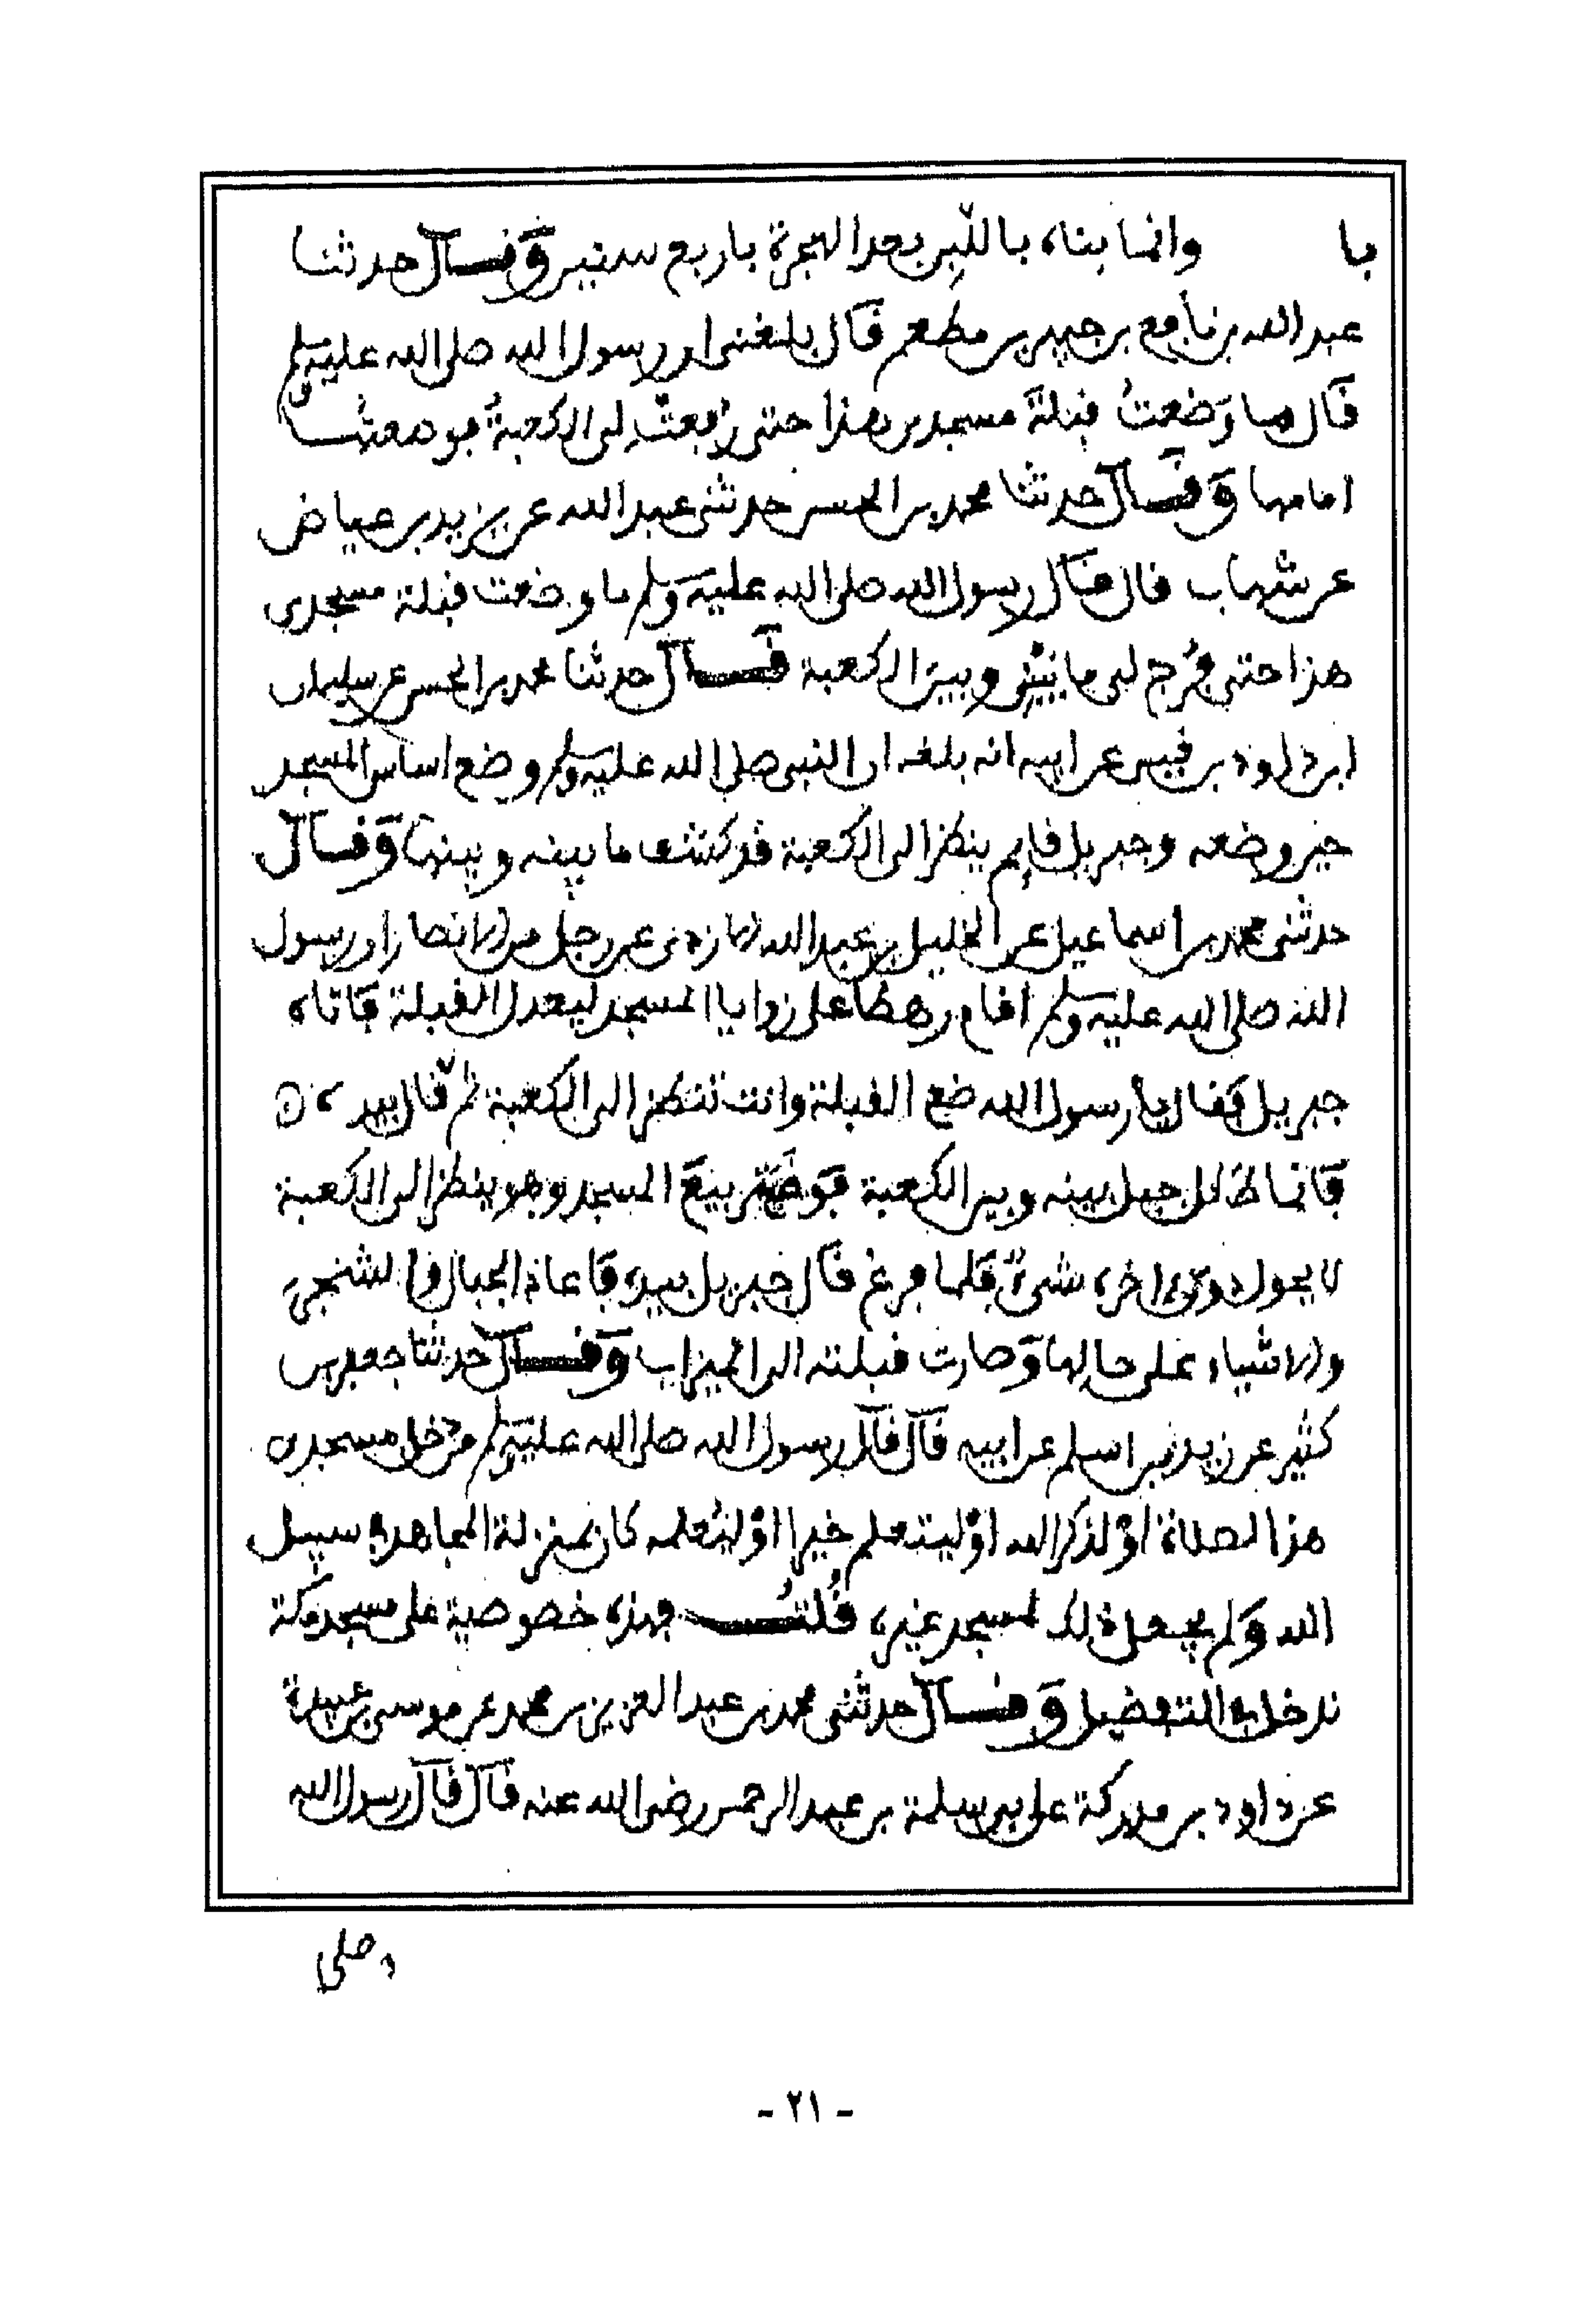 با وانما بناه باللبن بعد الهجرة باربع سنين وقال حدثنا
عبد الله بن نافع بن جبير بن مطعم قال بلغنى ان رسول الله صلى الله عليه وسلم
قال ما وضعت قبلة مسجدى هذا حتى رفعت لى الكعبة فوضعتها
امامها وقال حدثنا محمد بن الحسن حدثنى عبد الله عن يزيد بن عياض
عن شهاب قال قال رسول الله صلى الله عليه وسلم ما وضعت قبلة مسجدى
هذا حتى فرج لى ما بينى وبين الكعبة قال حدثنا محمد بن الحسن عن سليمان
ابن داود بن قيس عن ابيه انه بلغه ان النبى صلى الله عليه وسلم وضع اساس المسجد
حين وضعه وجبريل قايم ينظر الى الكعبة قد كشف ما بينه وبينها وقال
حدثنى محمد بن اسماعيل عن الخليل بن عبد الله الازدى عن رجل من الانصار ان رسول
الله صلى الله عليه وسلم اقام رهطا على زوايا المسجد ليعدل القبلة فاتاه
جبريل فقال يا رسول الله ضع القبلة وانت تنظر الى الكعبة ثم قال بيده
فاماط كل جبل بينه وبين الكعبة فوضع تربيع المسجد وهو ينظر الى الكعبة
لا يحول دون شىء فلما فرغ قال جبريل بيده فاعاد الجبال والشجر
والاشياء على حالها وصارت قبلته الى الميزاب وقال حدثنا جعفر بن
كثير عن زيد بن اسلم عن ابيه قال قال رسول الله صلى الله عليه وسلم من دخل مسجدى
هذا لصلاة او لذكر الله او ليتعلم خيرا او ليعلمه كان بمنزلة المجاهد فى سبيل
الله ولم يجعل ذلك لمسجد غيره قلت فهذه خصوصية على مسجد مكة
تدخل فى التفضيل وقال حدثنى محمد بن عبد العزيز بن محمد عن موسى بن عبيدة
عن داود بن مدركة على بن سلمة بن عبد الرحمن رضى الله عنه قال قال رسول الله
صلى
- ٢١ -